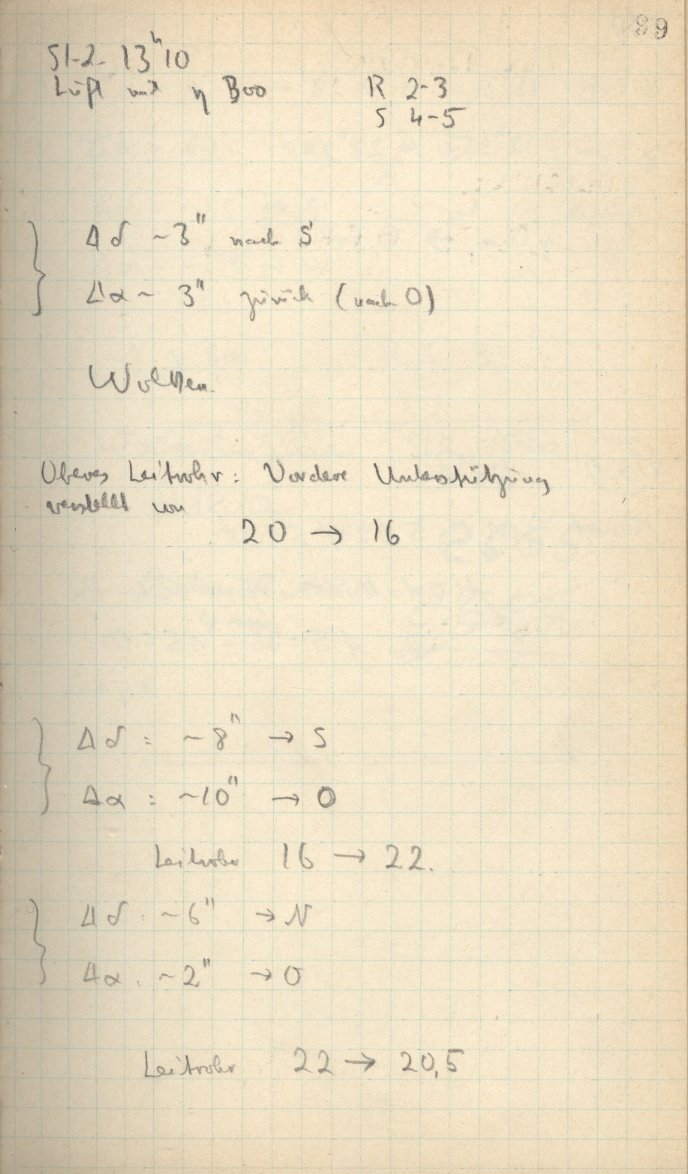 99
S1-2 13ʰ10
Luft und η Boo R 2-3
S 4-5
Δδ ~3" nach S
Δα ~ 3" zurück (nach O)
Wolken.
Oberes Leitrohr: Vordere Unterstützung
verstellt von
20 → 16
Δδ : ~8" → S
Δα : ~10" → O
Leitrohr 16 → 22.
Δδ : ~6" → N
Δα : ~2" → O
Leitrohr 22 → 20,5